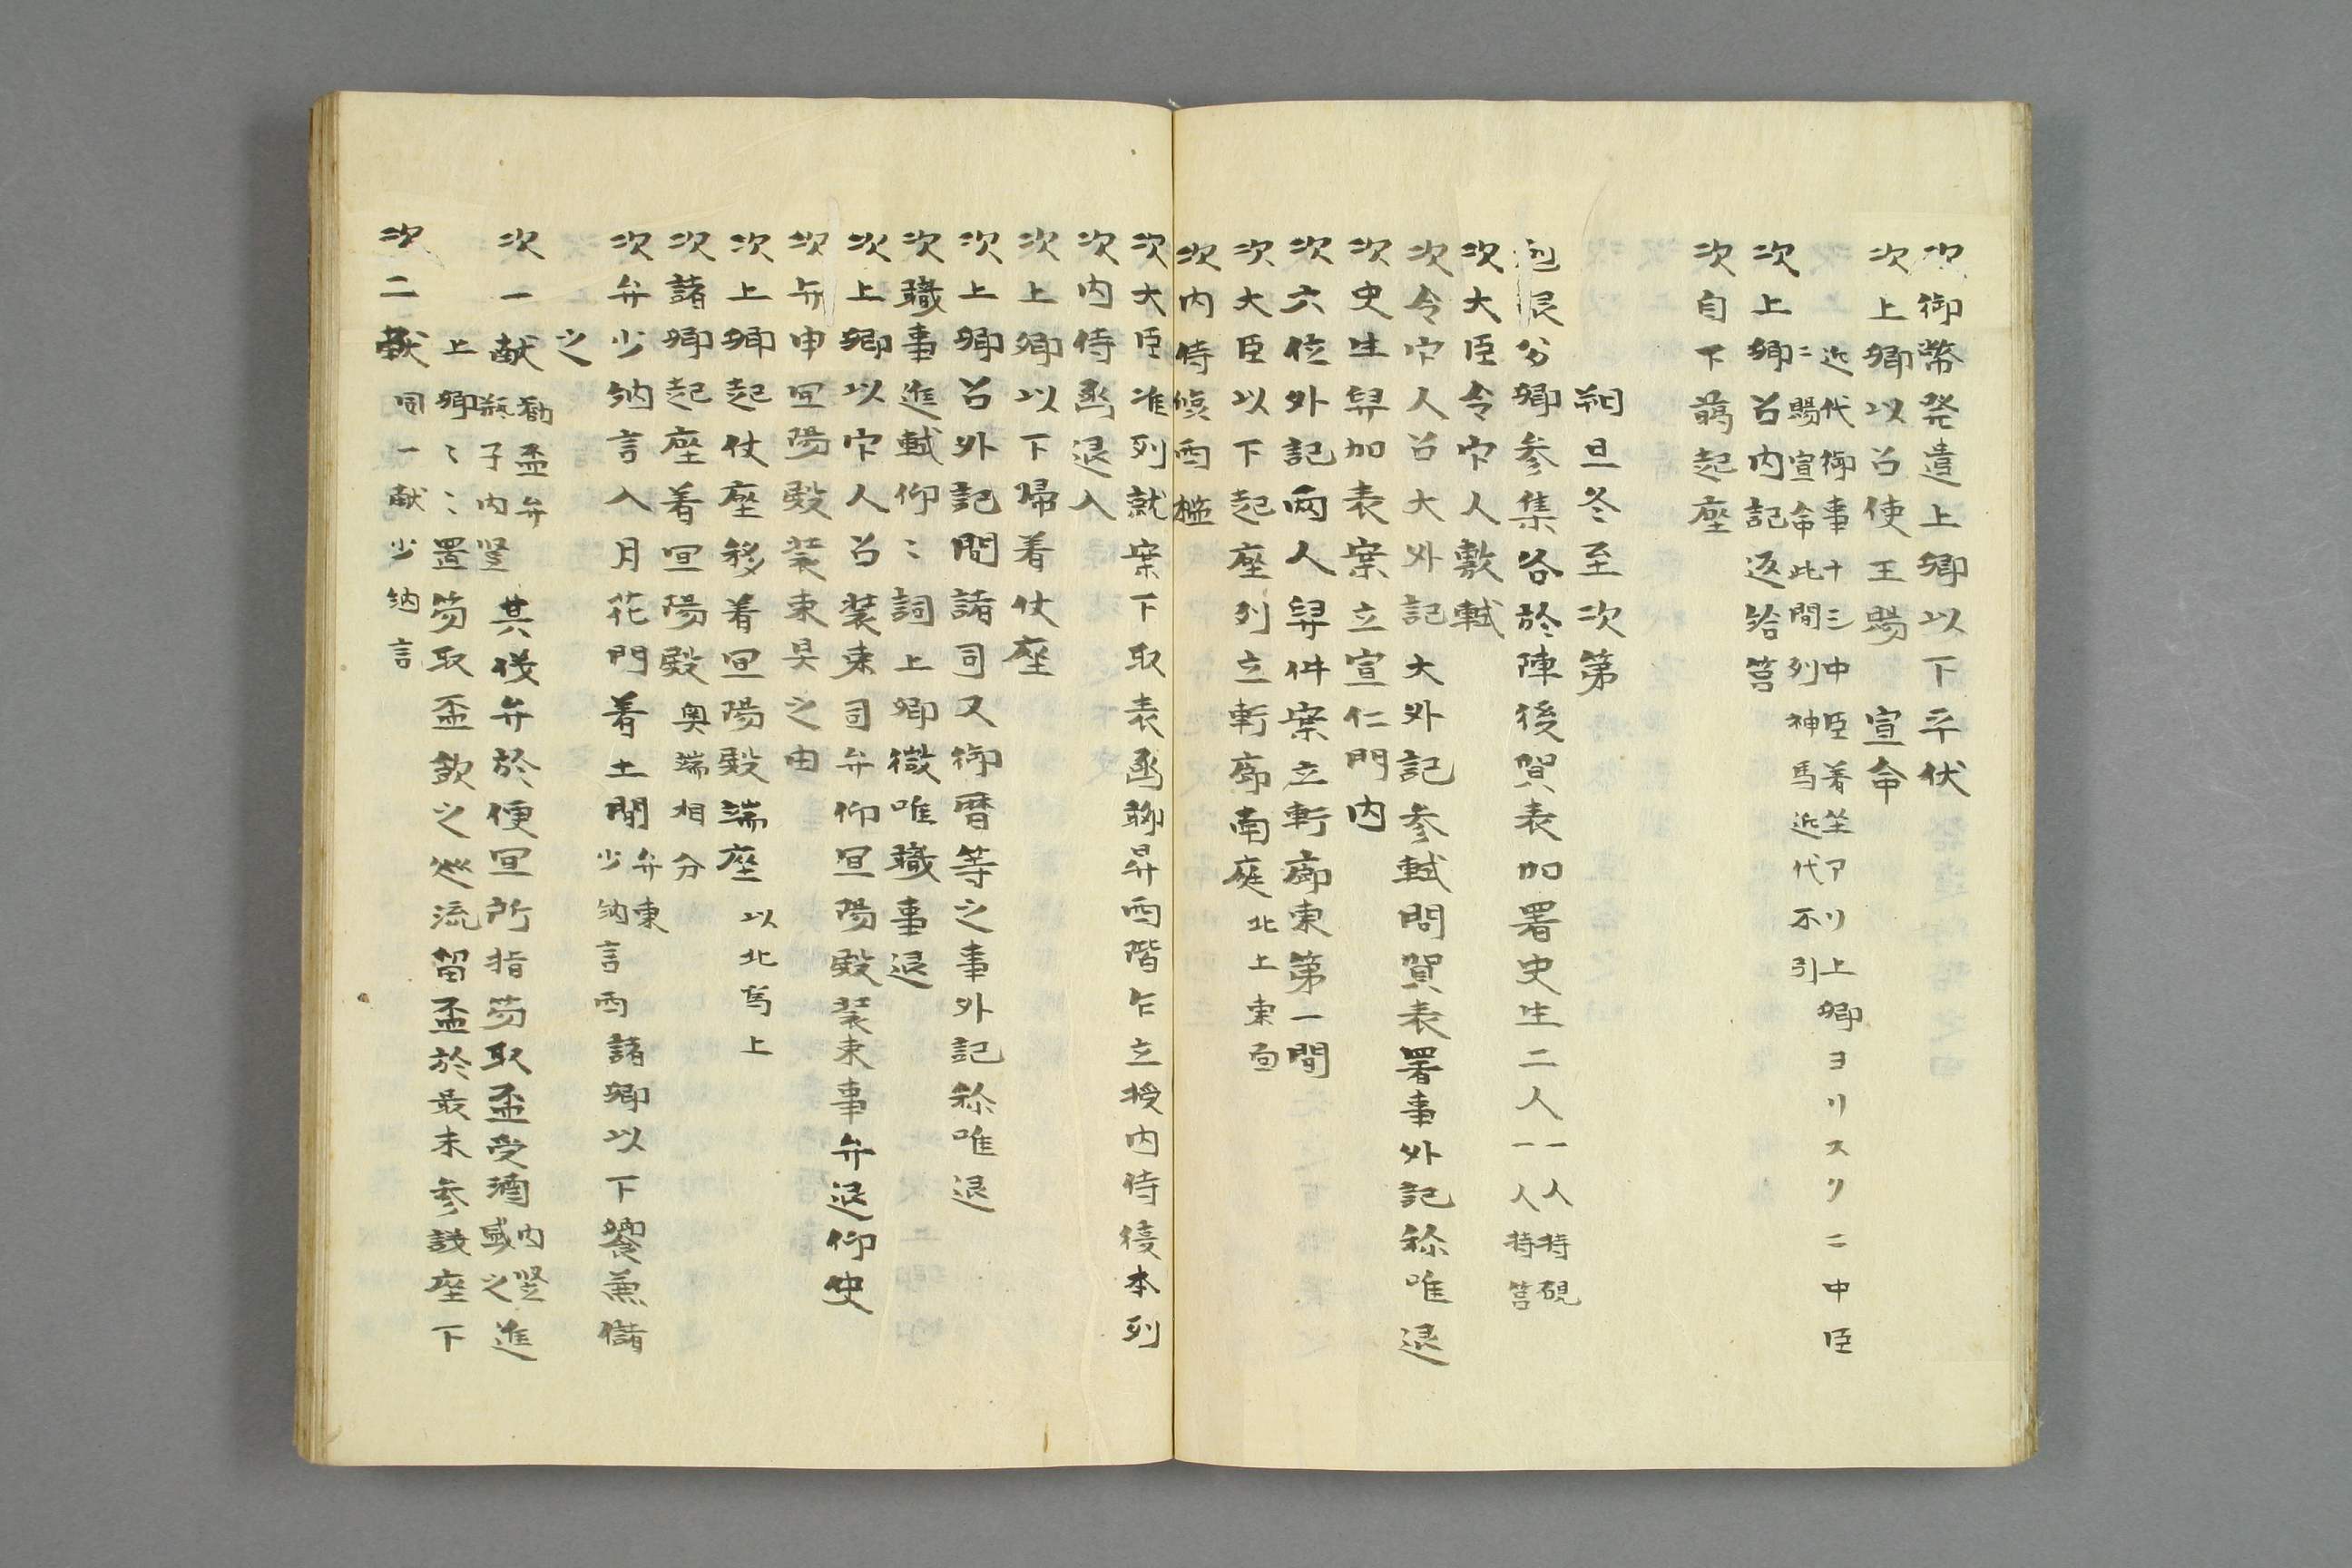 次御幣発遣上卿以下平伏
次上卿以召使王賜　宣命
近代御事十三中臣着座アリ上卿ヨリスクニ中臣
ニ賜宣命此間列　神馬近代不引
次上卿召内記返給筥
次自下﨟起座
朔旦冬至次第
剋限公卿参集各於陣後賀表加署史生二人一人持硯
一人持筥
次大臣令官人敷軾
次令官人召大外記大外記参軾問賀表署事外記称唯退
次史生舁加表案立宣仁門内
次六位外記両人舁件案立軒廊東第一間
次大臣以下起座列立軒廊南庭北上東面
次内侍候西檻
次大臣准列就案下取表函聊昇西階乍立授内侍復本列
次内侍函退入
次上卿以下帰着仗座
次上卿召外記問諸司又御暦等之事外記称唯退
次職事進軾仰々詞上卿微唯職事退
次上卿以官人召装束司弁仰宣陽殿装束事弁退仰史
次弁申宣陽殿装束具之由
次上卿起仗座移着宣陽殿端座以北為上
次諸卿起座着宣陽殿奥端相分
次弁少納言入月花門着土間弁東
少納言西諸卿以下饗兼儲
之
次一献勧盃弁
瓶子内竪其儀弁於便宜所指笏取盃受酒内竪
盛之進
上卿々々置笏取盃飲之巡流留盃於最末参議座下
次二献同一献少納言